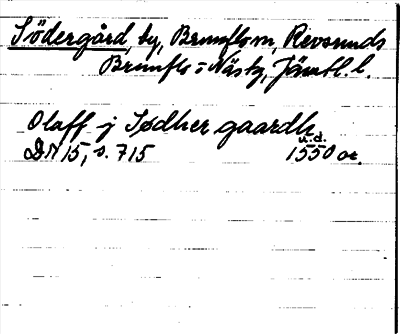 Södergård, by, Brunflo sn, Revsunds
Brunflo o Näs tg, Jämtl. l.
Olaff j Sødher gaardh
u.d.
DN 15, s. 715 1550 or.